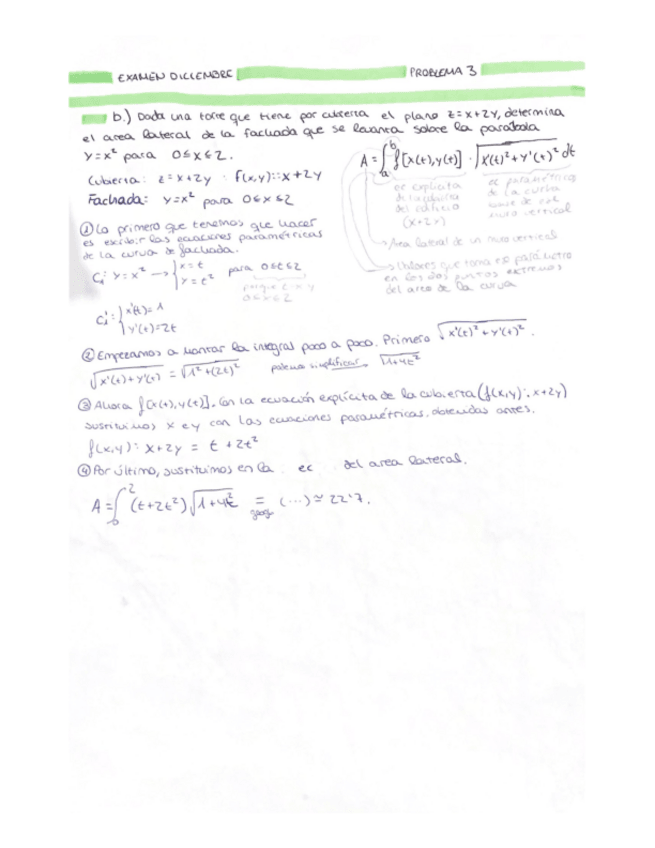 EXAMEN DICIEMBRE PROBLEMA 3
b.) Dada una torre que tiene por cubierta el plano z=x+2y, determina
el area lateral de la fachada que se levanta sobre la parábola
y=x² para 0≤x≤2.
Cubierta: z=x+2y · f(x,y)::x+2y
Fachada: y=x² para 0≤x≤2
A=∫ₐᵇ f[x(t),y(t)] · √(x'(t)²+y'(t)²) dt
ec explícita
de la cubierta
del edificio
(x+2y)
ec paramétrica
de la curva
base de ese
muro vertical
→ Area lateral de un muro vertical
→ Valores que toma ese parámetro
en los dos puntos extremos
del arco de la curva
① Lo primero que tenemos que hacer
es escribir las ecuaciones paramétricas
de la curva de fachada.
C₁: y=x² → { x=t
y=t²
para 0≤t≤2
0≤x≤2
C₁': { x'(t)=1
y'(t)=2t
② Empezamos a montar la integral poco a poco. Primero √(x'(t)²+y'(t)²).
√(x'(t)+y'(t)) = √(1²+(2t)²) podemos simplificar → √(1+4t²)
③ Ahora f[x(t),y(t)]. Con la ecuación explícita de la cubierta (f(x,y):x+2y)
sustituimos x e y con las ecuaciones paramétricas, obtenidas antes.
f(x,y): x+2y = t+2t²
④ Por último, sustituimos en la ec del area lateral.
A=∫₀² (t+2t²)√(1+4t²) = (...) ≃ 22'7.
geog